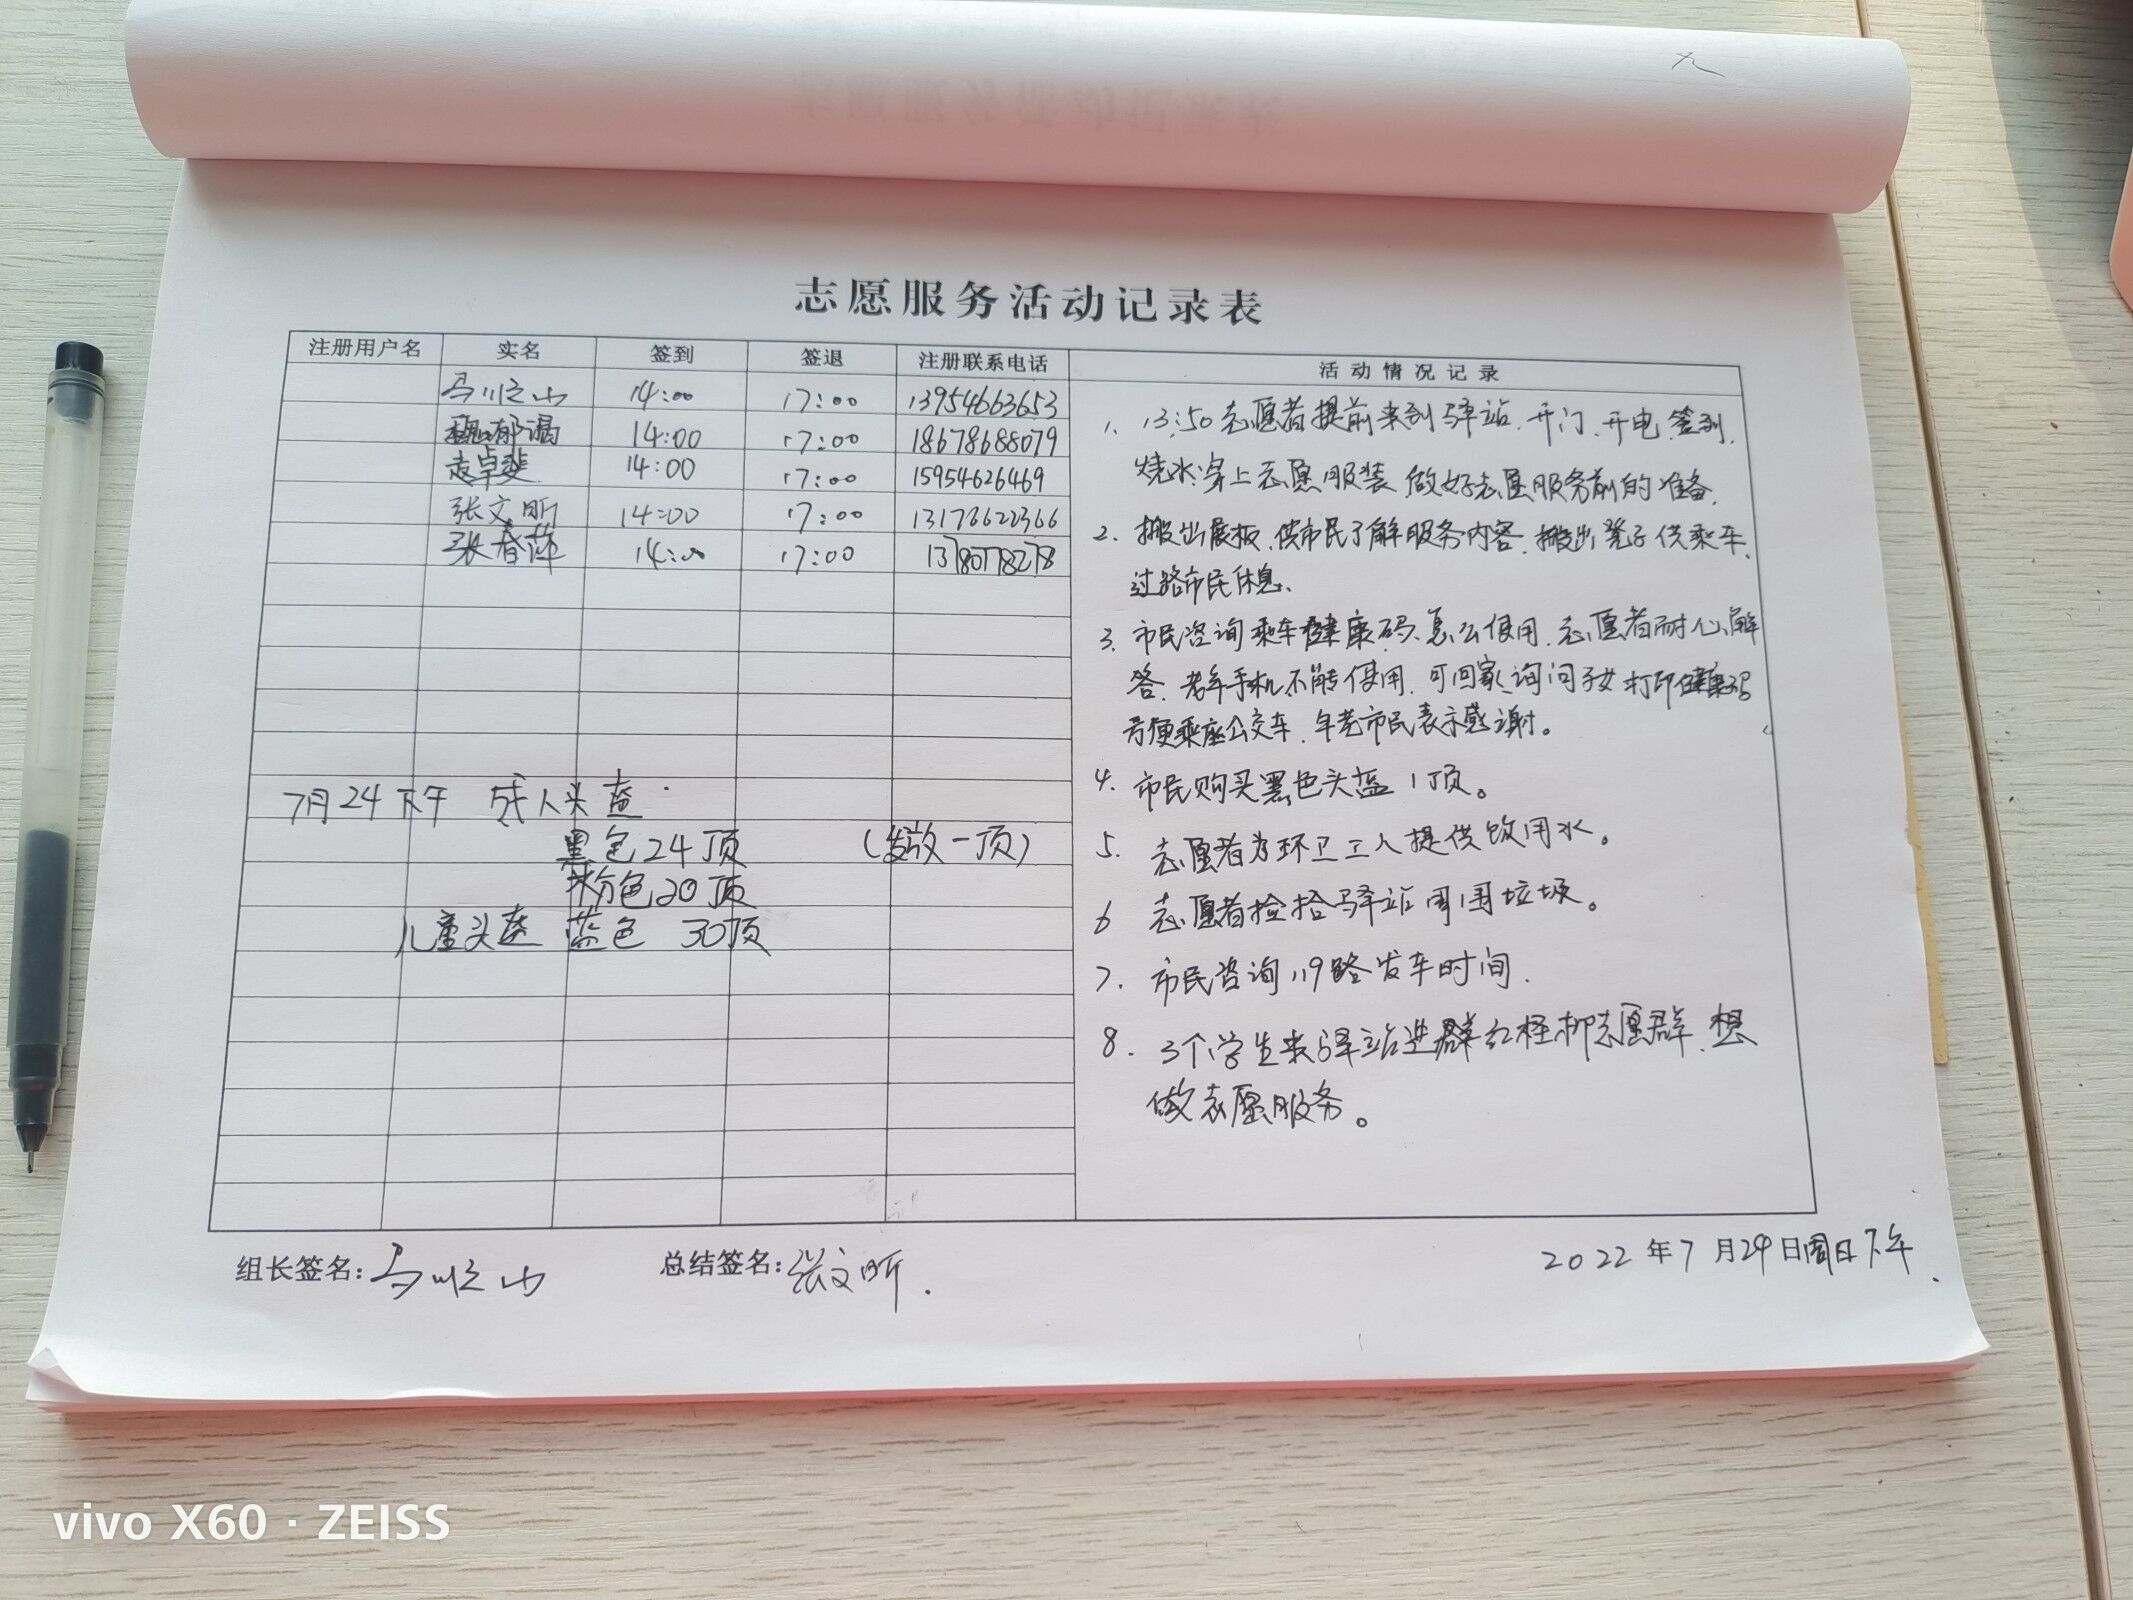 志愿服务活动记录表
注册用户名 实名 签到 签退 注册联系电话 活动情况记录
14:00 17:00 13954663653
14:00 17:00 18678688079
14:00 17:00 15954626469
张文昕 14:00 17:00
张春萍 14:00 17:00 13780778278
7月24下午 成人头盔
黑色24顶 (发放一顶)
粉色20顶
儿童头盔 蓝色 30顶
1. 13:50志愿者提前来到驿站、开门、开电、签到、
烧水、穿上志愿服装 做好志愿服务前的准备.
2. 搬出展板、供市民了解服务内容、搬出凳子供乘车、
过路市民休息.
3. 市民咨询乘车健康码、怎么使用、志愿者耐心解
答、老年手机不能使用、可回家询问子女打印健康码
方便乘座公交车、年老市民表示感谢。
4. 市民购买黑色头盔1顶。
5. 志愿者为环卫工人提供饮用水。
6 志愿者捡拾驿站周围垃圾。
7. 市民咨询119路发车时间.
8. 3个学生来驿站进群红柽柳志愿群、想
做志愿服务。
组长签名: 总结签名:张文昕.
2022年7月24日周日下午.
vivo X60 · ZEISS